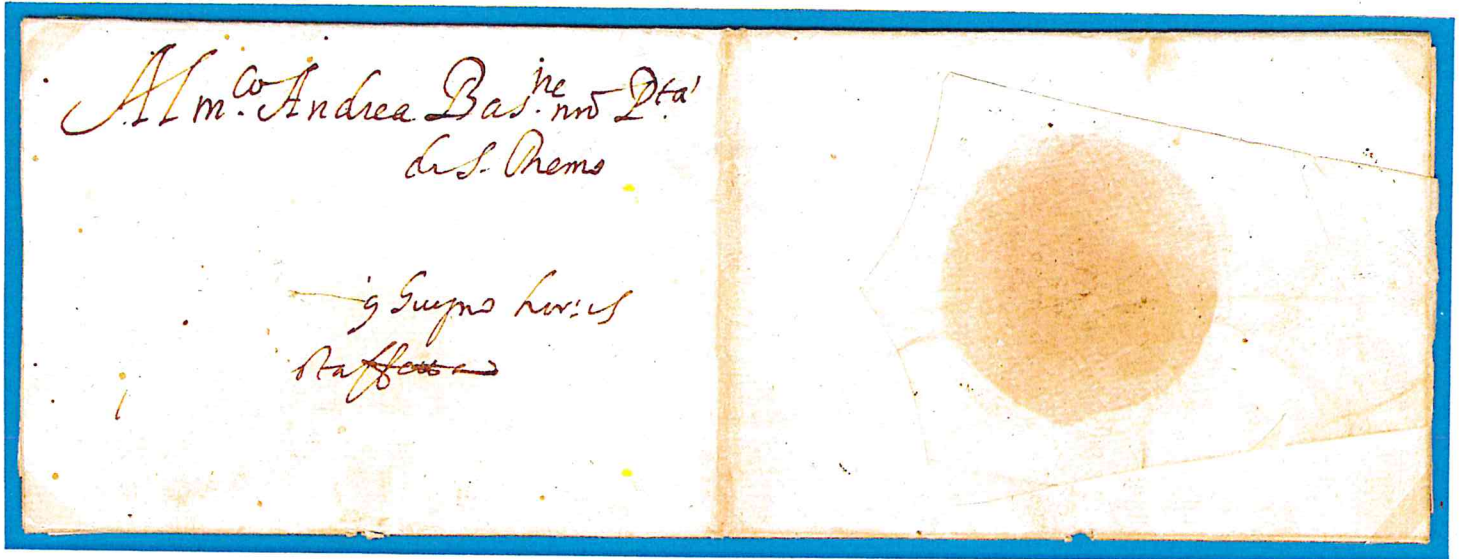 Al m.co Andrea Bas.ne nrõ P.tà
di S. Rhemo
9 Giugno hor: 15
staffetta